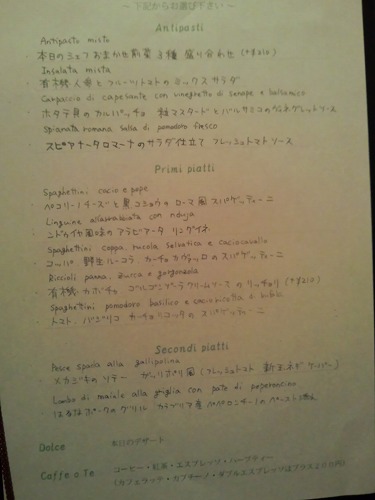 ～下記からお選び下さい～
Antipasti
Antipasto misto
本日のシェフおまかせ前菜3種盛り合わせ (+¥210)
Insalata mista
有機人参とフルーツトマトのミックスサラダ
Carpaccio di capesante con vinegretto di senape e balsamico
ホタテ貝のカルパッチョ 粒マスタードとバルサミコのヴィネグレットソース
Spianata romana salsa di pomodoro fresco
スピアナータロマーナのサラダ仕立て フレッシュトマトソース
Primi piatti
Spaghettini cacio e pepe
ペコリーノチーズと黒コショウのローマ風スパゲッティーニ
Linguine all'arrabbiata con nduja
ンドゥイヤ風味のアラビアータ リングイネ
Spaghettini coppa, rucola selvatica e caciocavallo
コッパ 野生ルーコラ カーチョカヴァッロのスパゲッティーニ
Riccioli panna, zucca e gorgonzola
有機カボチャ、ゴルゴンゾーラクリームソースのリッチョリ (+¥210)
Spaghettini pomodoro basilico e cacioricotta di bufala
トマト、バジリコ カーチョリコッタのスパゲッティーニ
Secondi piatti
Pesce spada alla gallipolina
メカジキのソテー ガッリポリ風 (フレッシュトマト 新玉ネギ ケーパー)
Lombo di maiale alla griglia con pate di peperoncino
はるなポークのグリル カラブリア産ペペロンチーノのペースト添え
Dolce 本日のデザート
Caffe o Te コーヒー・紅茶・エスプレッソ・ハーブティー
(カフェラッテ・カプチーノ・ダブルエスプレッソはプラス200円)